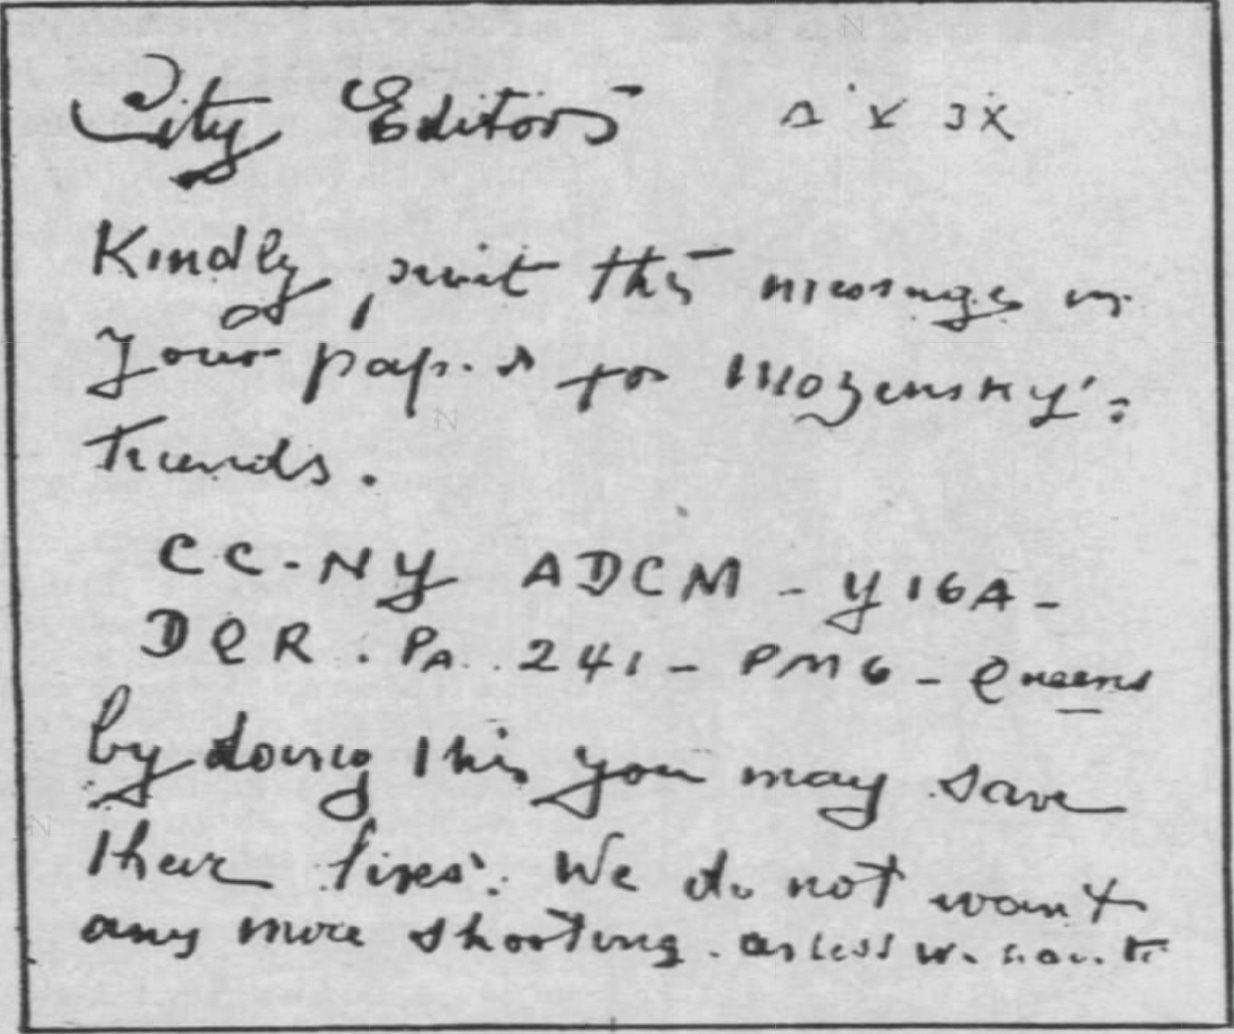 City Editor
Kindly print this message in
your paper for Mozynsky's
friends.
CC-NY ADCM - Y16A -
DQR. PA 241 - PM6 - Queens
by doing this you may save
their lives. We do not want
any more shooting. unless we have to